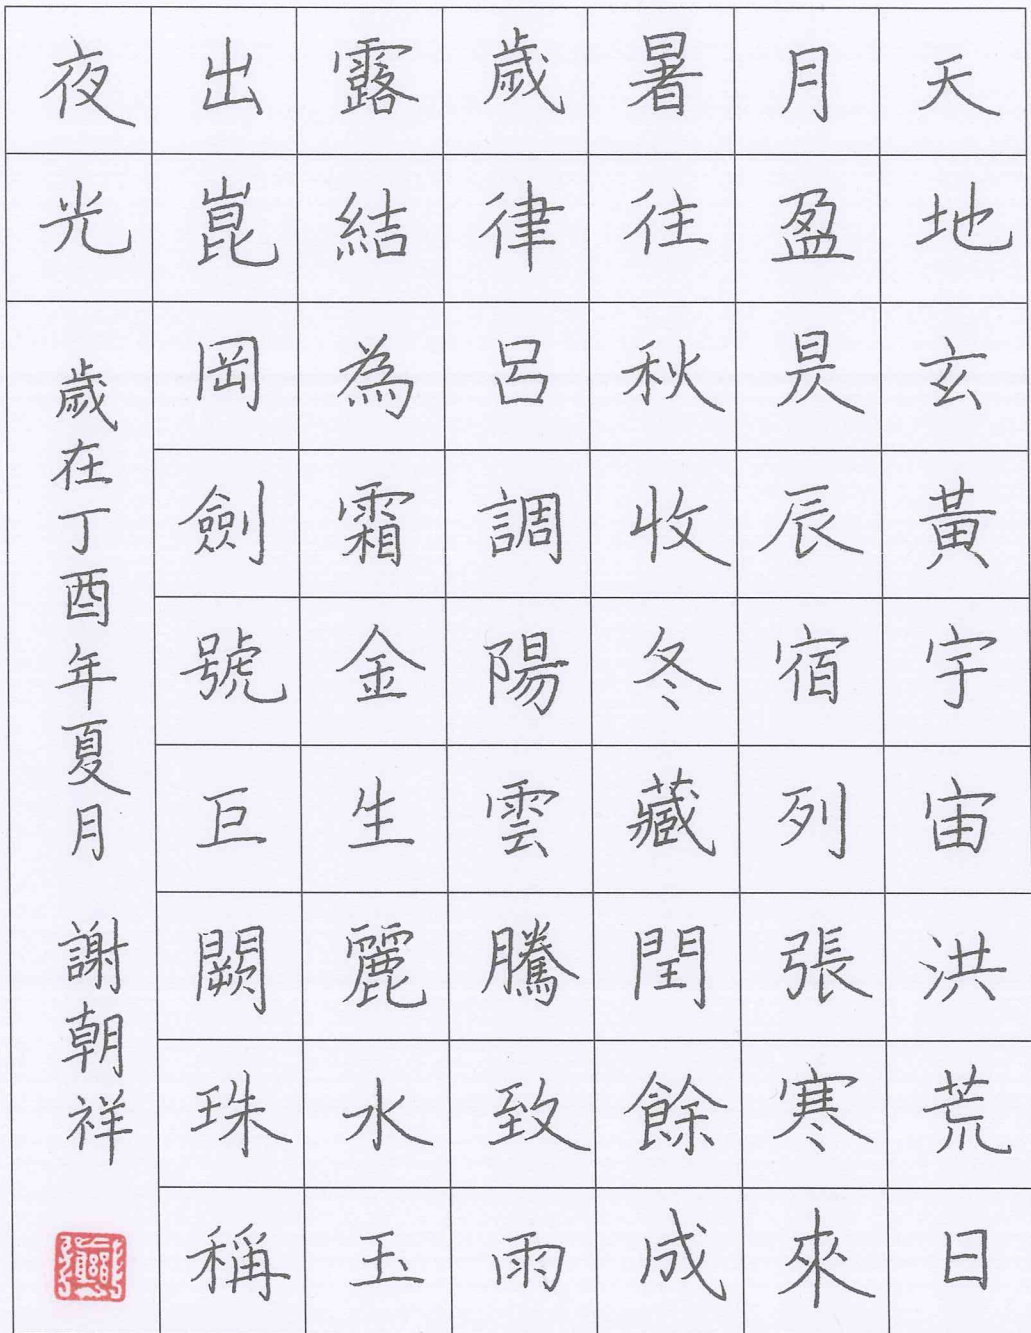 天地玄黃宇宙洪荒日
月盈昃辰宿列張寒來
暑往秋收冬藏閏餘成
歲律呂調陽雲騰致雨
露結為霜金生麗水玉
出崑岡劍號巨闕珠稱
夜光
歲在丁酉年夏月 謝朝祥